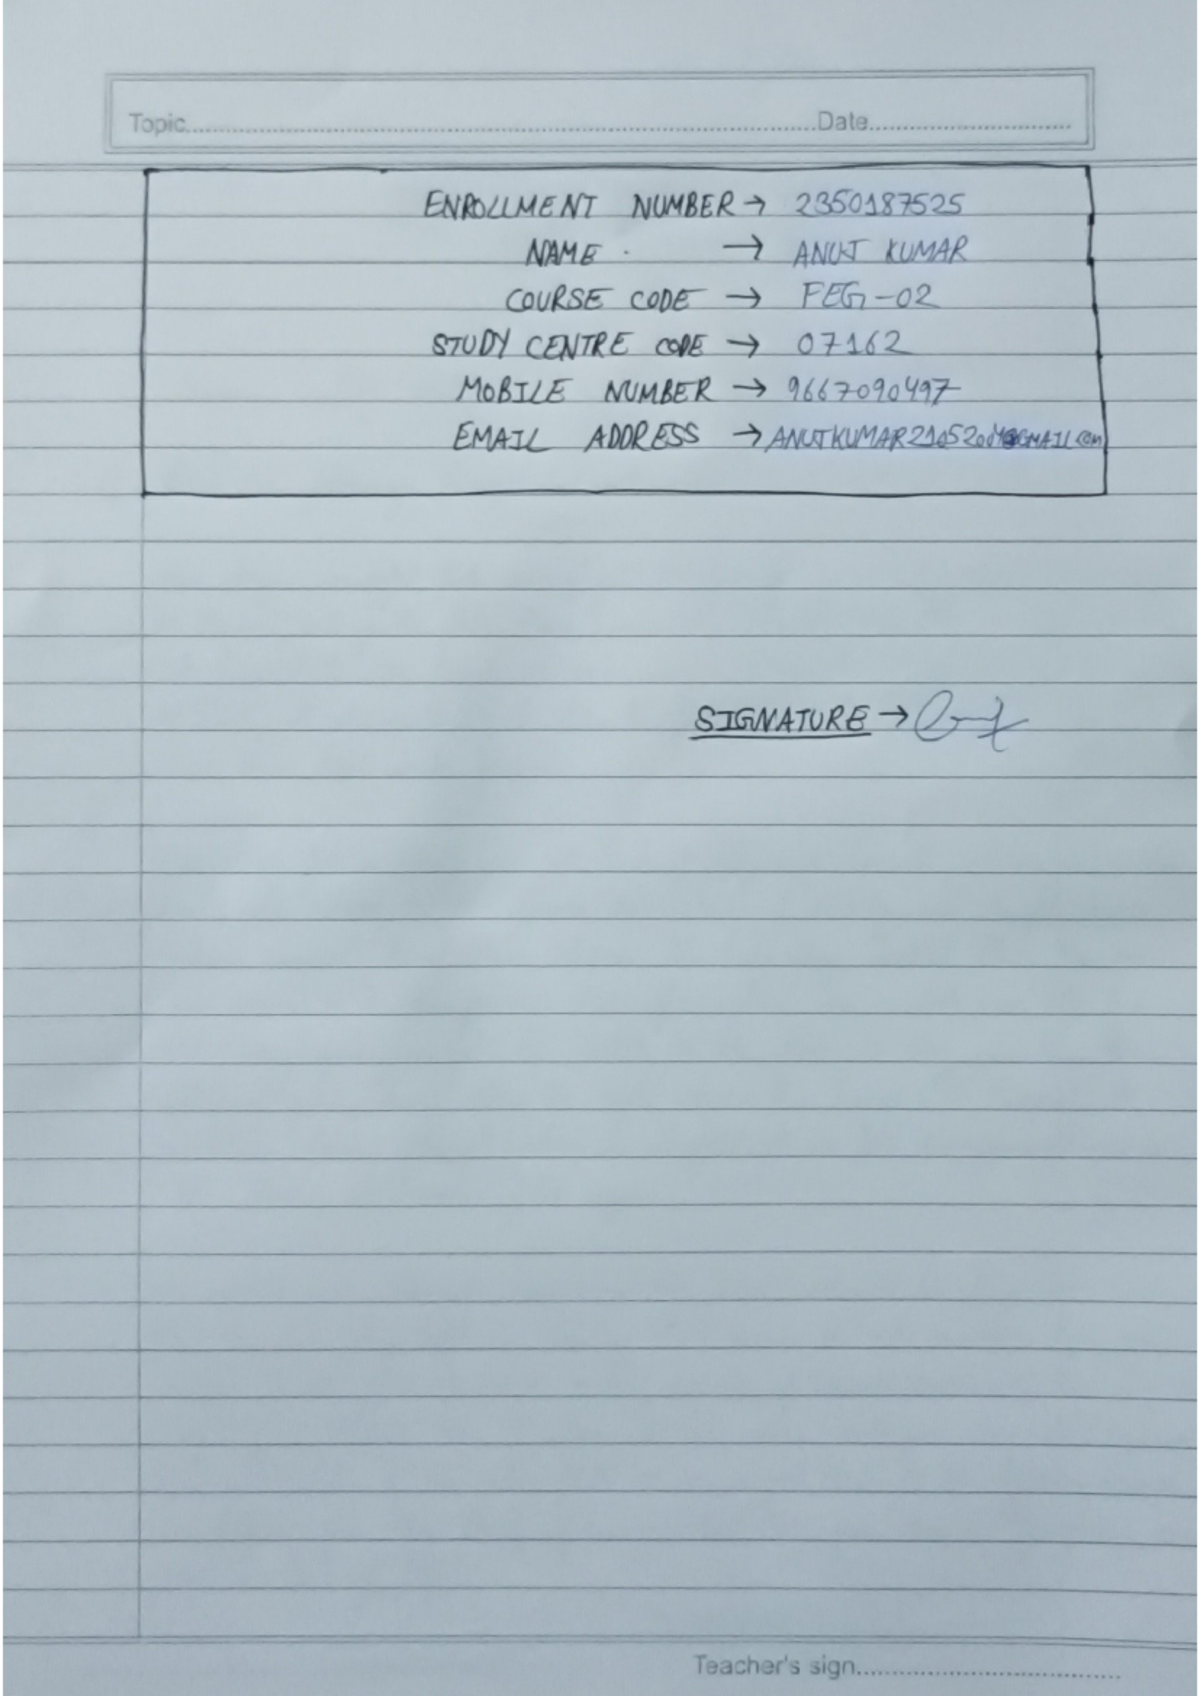 Topic.......................................Date.......................
ENROLLMENT NUMBER → 2350187525
NAME → ANUJ KUMAR
COURSE CODE → FEG-02
STUDY CENTRE CODE → 07162
MOBILE NUMBER → 9667090497
EMAIL ADDRESS → ANUJKUMAR21052004@GMAIL.COM
SIGNATURE →
Teacher's sign.......................................